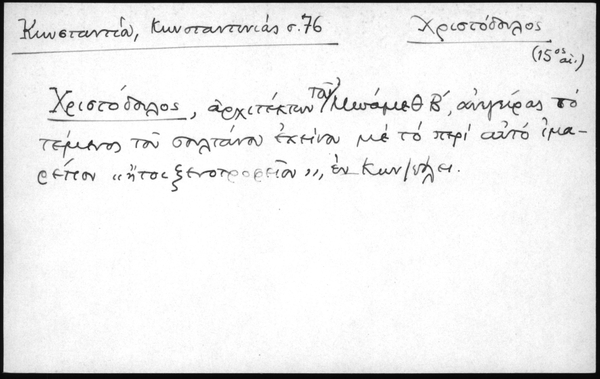 Κωνσταντίᾳ, Κωνσταντινιάς σ. 76
Χριστόδουλος
(15ος αἰ.)
Χριστόδουλος, ἀρχιτέκτων τοῦ Μωάμεθ Β΄, ἀνεγείρας τὸ
τέμενος τοῦ σουλτάνου ἐκείνου μὲ τὸ περὶ αὐτὸ ἰμα-
ρέτιον "ἤτοι ξενοτροφεῖον", ἐν Κων/πόλει.